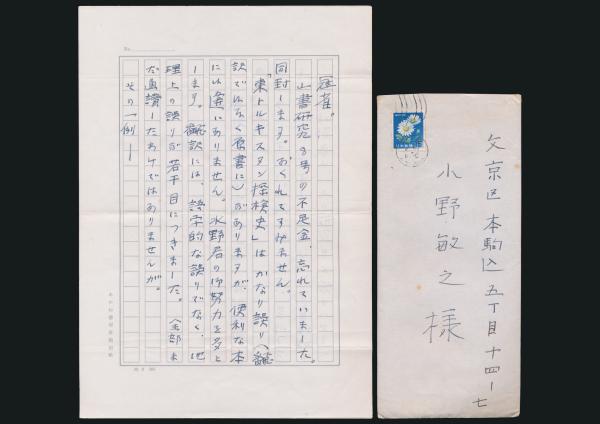 冠省。
山書研究8号の不足金、忘れていました。
同封します。おくれてすみません。
「東トルキスタン探検史」はかなり誤り(翻
訳でなく原書に)がありますが、便利な本
にはありません。水野君の御努力を多と
します。翻訳には、語学的な誤りでなく、地
理上の誤りが若干目につきました。(全部ま
だ通読したわけではありませんが。
その一例ー
文京区本駒込五丁目十四ー七
小野敏之様